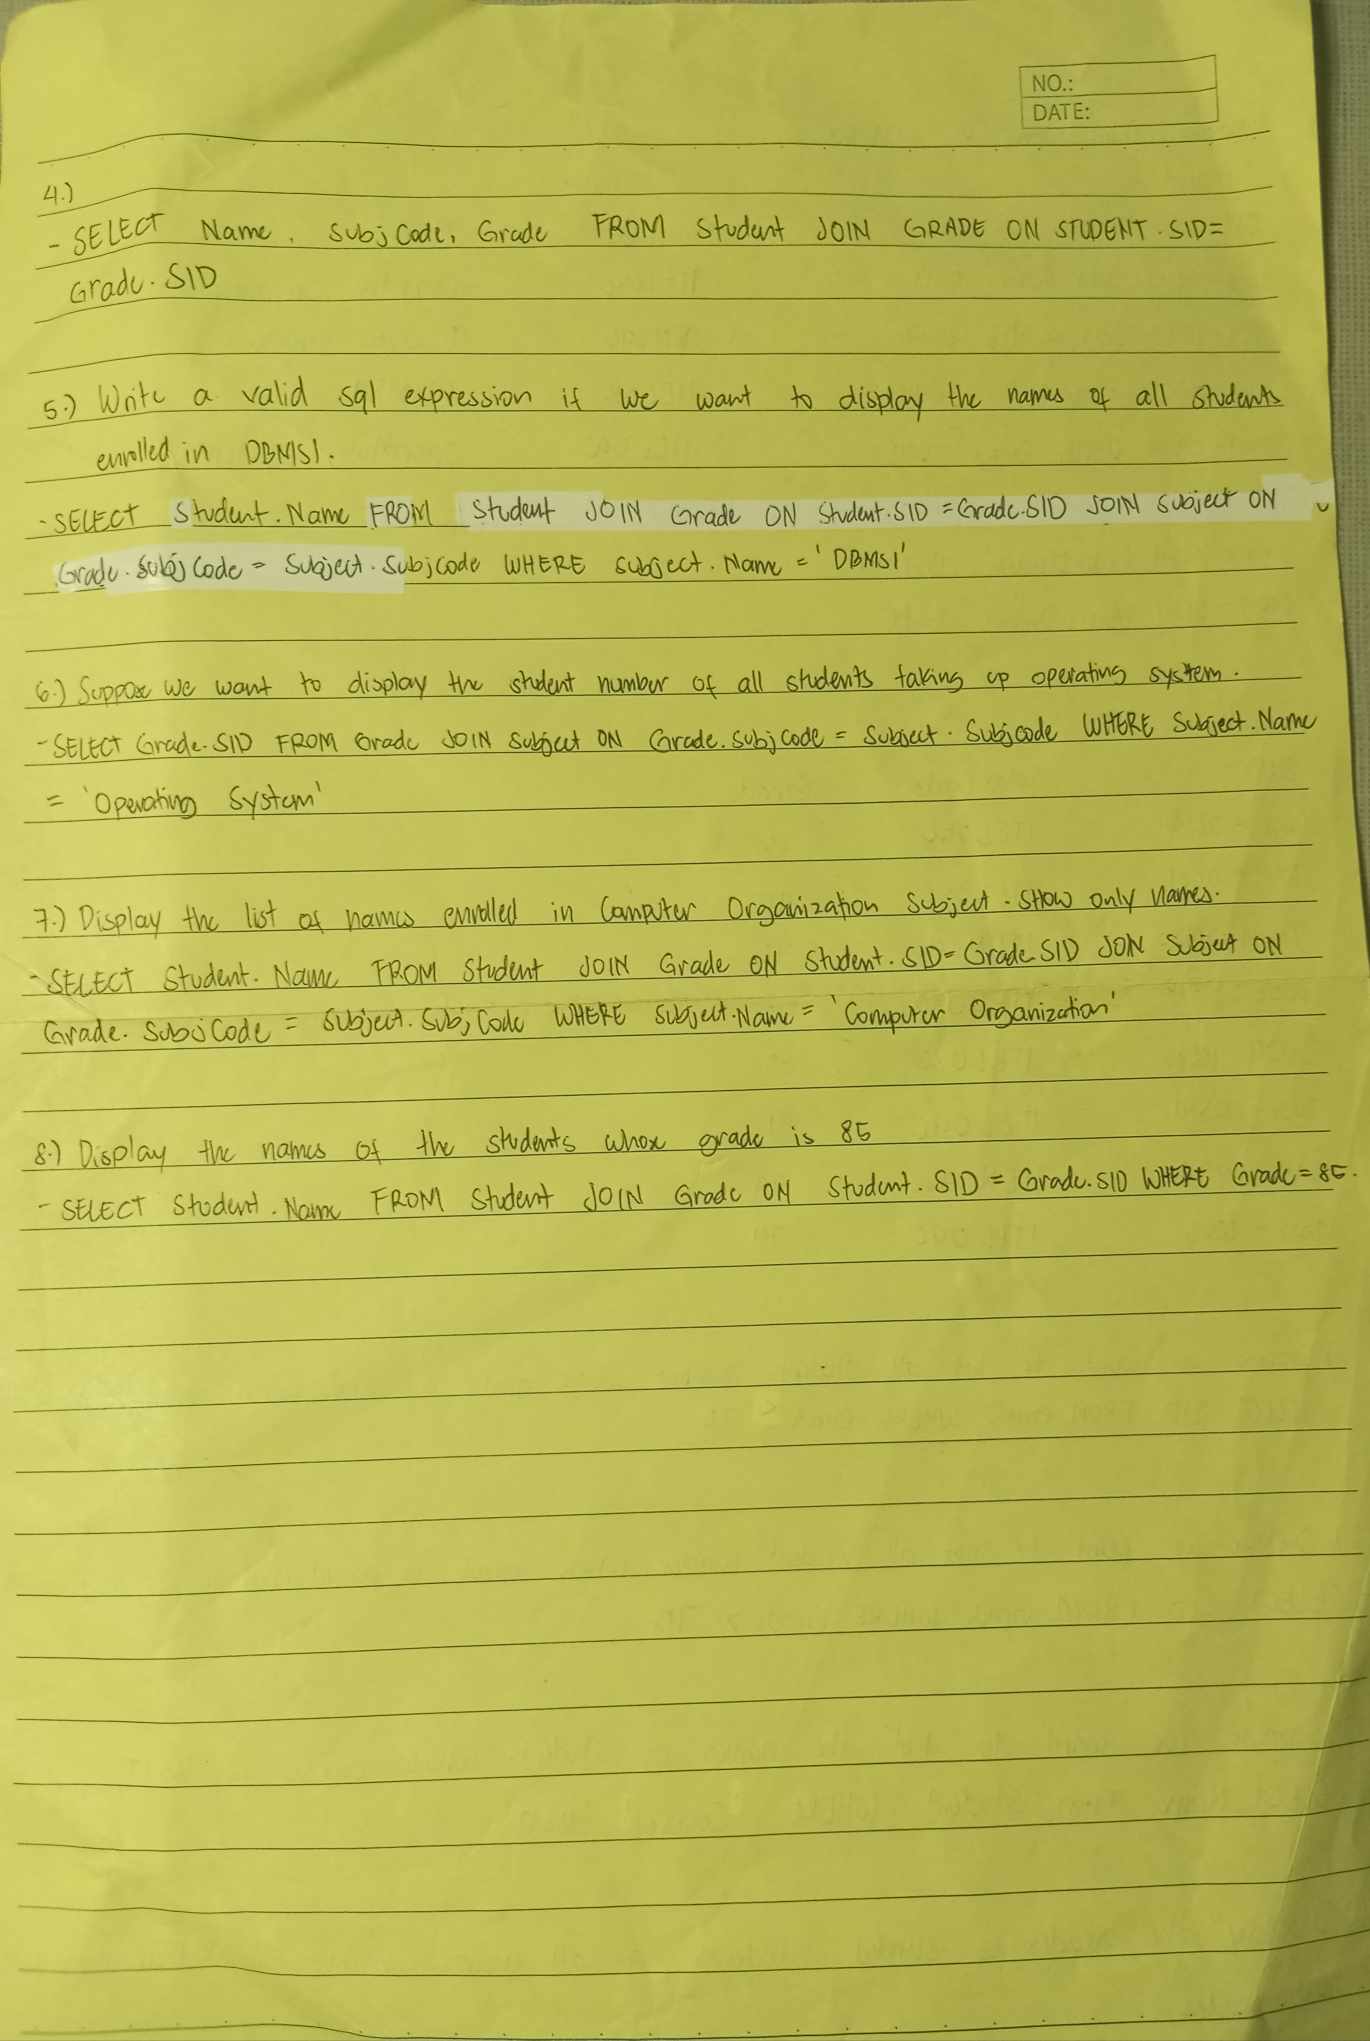 NO.:
DATE:
4.)
- SELECT Name, SubjCode, Grade FROM Student JOIN GRADE ON STUDENT.SID=
Grade.SID
5.) Write a valid sql expression if we want to display the names of all students
enrolled in DBMS1.
- SELECT Student.Name FROM Student JOIN Grade ON Student.SID = Grade.SID JOIN Subject ON
Grade.SubjCode = Subject.Subjcode WHERE Subject.Name = 'DBMS1'
6.) Suppose we want to display the student number of all students taking up operating system.
- SELECT Grade.SID FROM Grade JOIN Subject ON Grade.SubjCode = Subject.Subjcode WHERE Subject.Name
= 'Operating System'
7.) Display the list of names enrolled in Computer Organization Subject. Show only names.
- SELECT Student.Name FROM Student JOIN Grade ON Student.SID = Grade.SID JOIN Subject ON
Grade.SubjCode = Subject.SubjCode WHERE Subject.Name = 'Computer Organization'
8.) Display the names of the students whose grade is 85
- SELECT Student.Name FROM Student JOIN Grade ON Student.SID = Grade.SID WHERE Grade = 85.